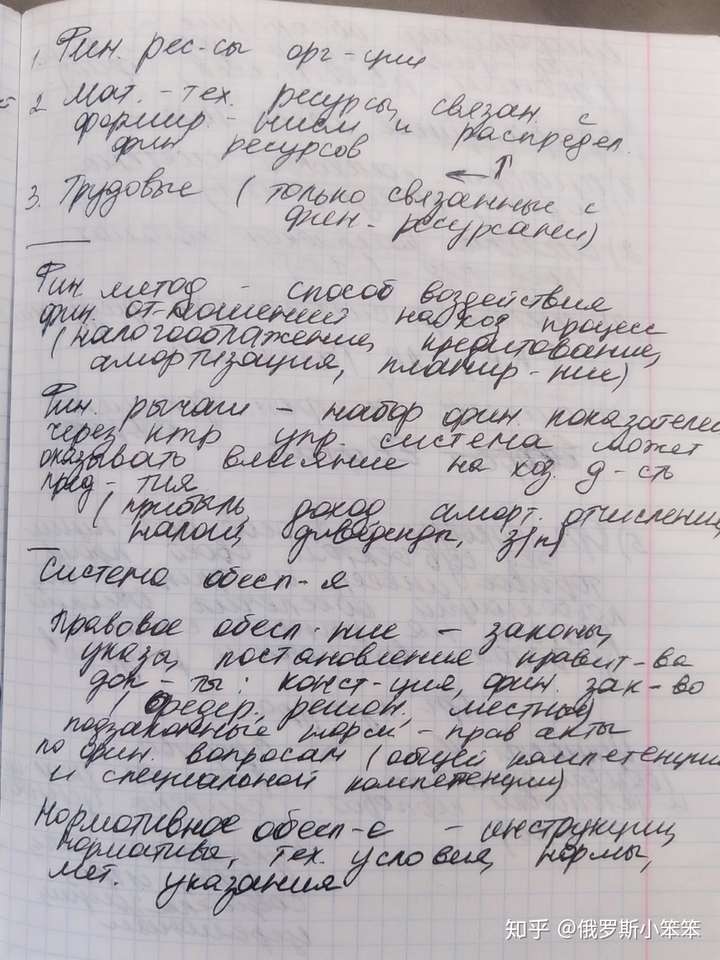 1. Фин. рес-сы орг-ции
2. Мат.-тех. ресурсы, связан. с
формир-нием и распредел.
фин ресурсов
3. Трудовые (только связанные с
фин-ресурсами)
Фин метод - способ воздействия
фин. от-ношений на хоз процесс
(налогооблажение, кредитование,
амортизация, планир-ние)
Фин. рычаги - набор фин. показателей
через ктр упр. система может
оказывать влияние на хоз. д-сть
пред-тия
(прибыль, доход, аморт. отчисления,
налоги, дивиденды, з/п)
Система обесп-я
Правовое обесп-ние - законы,
указы, постановление правит-ва
док-ты: конст-ция, фин. зак-во
(федер., регион., местные)
подзаконные норм-прав акты
по фин. вопросам (общей компетенции
и специальной компетенции)
Нормативное обесп-е - инструкции,
нормативы, тех. условия, нормы,
мет. указания
知乎 @俄罗斯小笨笨